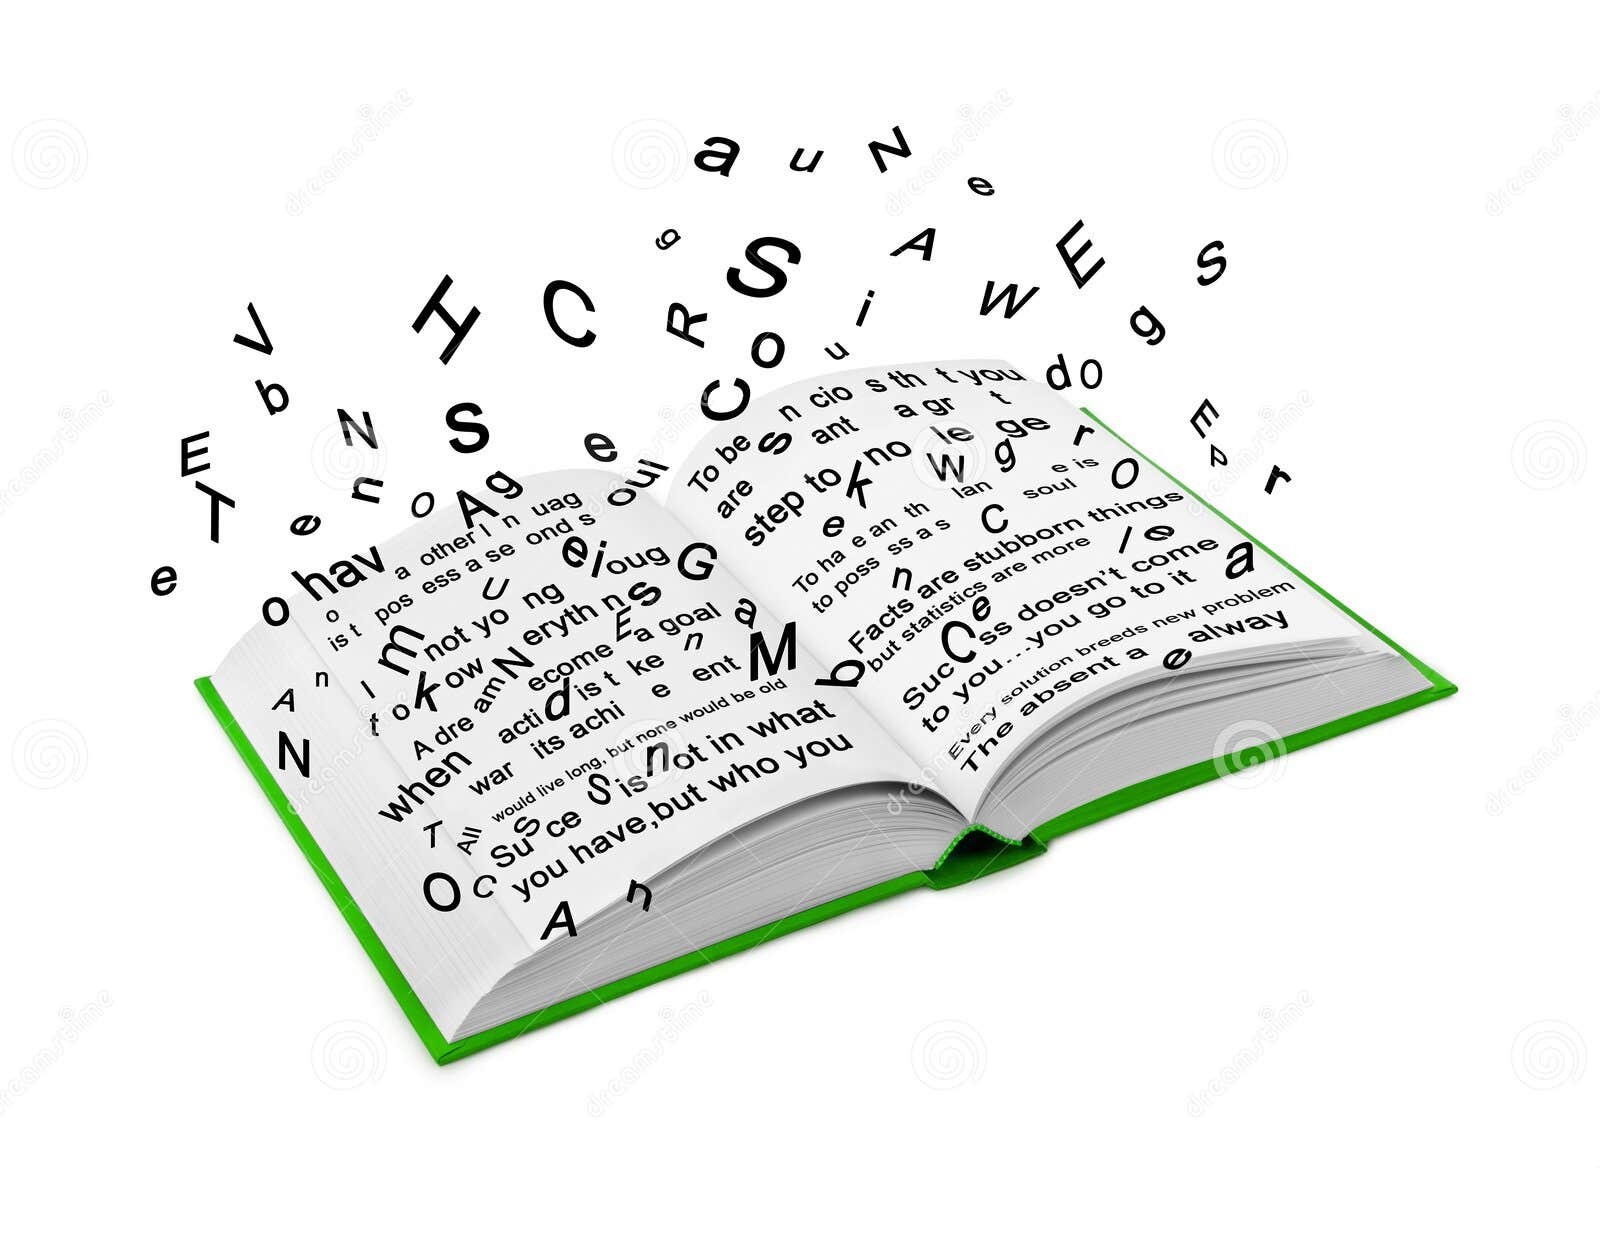 a u N e
g S A E S
V H C R i W g
b N S e C o u d O E
E T e n o A g oul A r
e
o hav a other l n uag
o is t pos ess a se ond s
I m not yo ng e i oug G
t o k ow N eryth n E s a goal
A dre am ecome a
when acti d is t ke n M
war its achi e ent
All would live long, but none would be old
Su s ce S is n ot in what
you have,but who you
A n
N
T
O C
A n
To be s n cio s th t you
are ant a gr t
step to k no W le g ge r
To ha e an th lan e soul e is O
to poss ss a s C
Facts are stubborn things
but statistics are more l e a
Suc C e ss doesn't come
to you...you go to it
Every solution breeds new problem
The absent a e alway
b
dreamstime